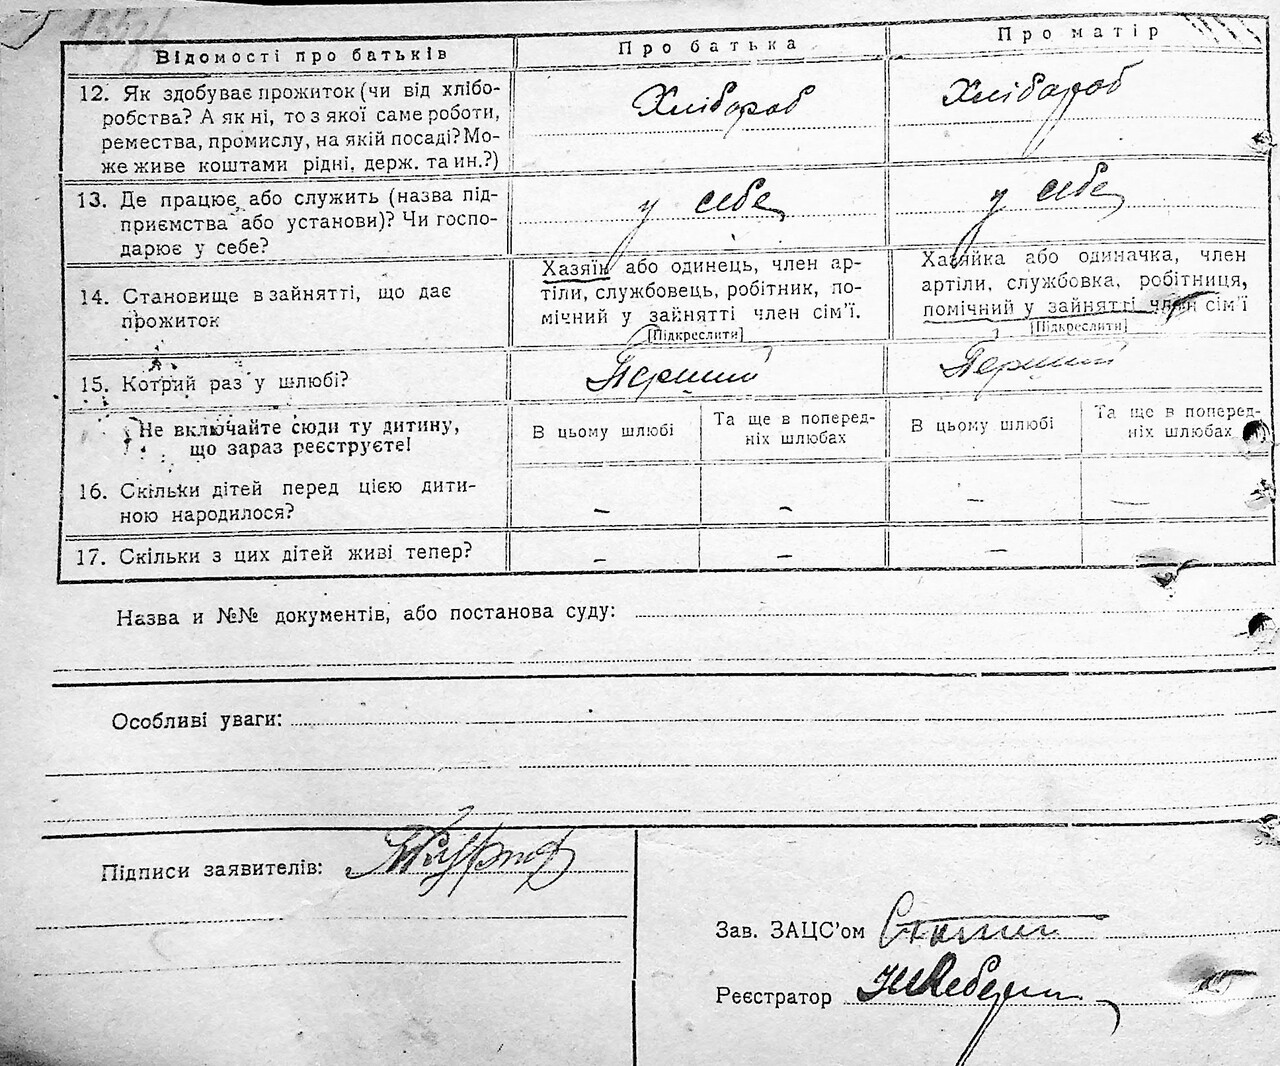 Відомості про батьків
Про батька
Про матір
12. Як здобуває прожиток (чи від хлібо-
робства? А як ні, то з якої саме роботи,
ремества, промислу, на якій посаді? Мо-
же живе коштами рідні, держ. та ин.?)
Хлібороб
Хлібороб
13. Де працює, або служить (назва під-
приємства або установи)? Чи госпо-
дарює у себе?
у себе
у себе
14. Становище в зайнятті, що дає
прожиток
Хазяїн або одинець, член ар-
тіли, службовець, робітник, по-
мічний у зайнятті член сім'ї.
[Підкреслити]
Хазяйка або одиначка, член
артіли, службовка, робітниця,
помічний у зайнятті член сім'ї
[Підкреслити]
15. Котрий раз у шлюбі?
Перший
Перший
Не включайте сюди ту дитину,
що зараз реєструєте!
В цьому шлюбі
Та ще в поперед-
ніх шлюбах
В цьому шлюбі
Та ще в поперед-
ніх шлюбах
16. Скільки дітей перед цією дити-
ною народилося?
–
–
–
–
17. Скільки з цих дітей живі тепер?
–
–
–
–
Назва и №№ документів, або постанова суду:
Особливі уваги:
Підписи заявителів:
Зав. ЗАЦС'ом
Реєстратор